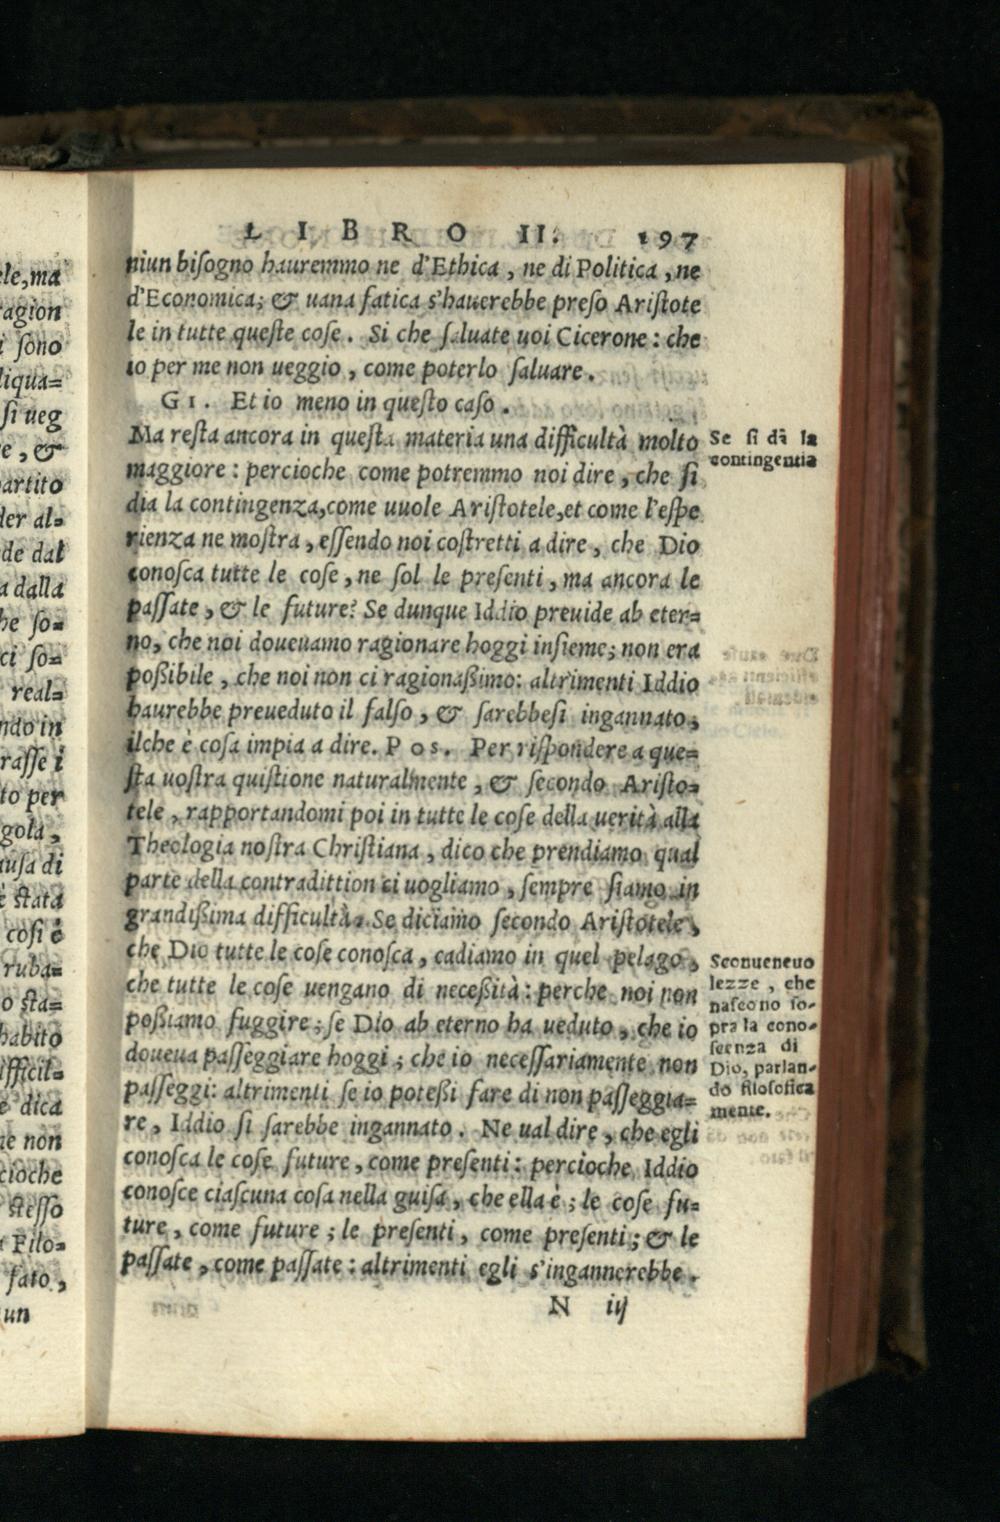 ele, ma
ragion
i sono
liqua=
si ueg
e, &
artito
der al=
de dal
a dalla
he ſo=
ci ſo=
real=
ndo in
raſſe i
to per
gola,
auſa di
è ſtata
coſi è
ruba=
o ſta=
habito
ifficil=
e dica
ne non
cioche
ſteſſo
Filo=
fato,
un
LIBRO II. 197
niun biſogno hauremmo ne d'Ethica, ne di Politica, ne
d'Economica; & uana fatica s'hauerebbe preſo Ariſtote
le in tutte queſte coſe. Si che ſaluate uoi Cicerone: che
io per me non ueggio, come poterlo ſaluare.
GI. Et io meno in queſto caſo.
Ma reſta ancora in queſta materia una difficultà molto
maggiore: percioche come potremmo noi dire, che ſi
dia la contingenza, come uuole Ariſtotele, et come l'eſpe
rienza ne moſtra, eſſendo noi coſtretti a dire, che Dio
conoſca tutte le coſe, ne ſol le preſenti, ma ancora le
paſſate, & le future? Se dunque Iddio preuide ab eter=
no, che noi doueuamo ragionare hoggi inſieme; non era
poßibile, che noi non ci ragionaßimo: altrimenti Iddio
haurebbe preueduto il falſo, & ſarebbeſi ingannato,
ilche è coſa impia a dire. Pos. Per riſpondere a que=
ſta uoſtra quiſtione naturalmente, & ſecondo Ariſto=
tele, rapportandomi poi in tutte le coſe della uerità alla
Theologia noſtra Chriſtiana, dico che prendiamo qual
parte della contradittion ci uogliamo, ſempre ſiamo in
grandißima difficultà. Se diciamo ſecondo Ariſtotele,
che Dio tutte le coſe conoſca, cadiamo in quel pelago,
che tutte le coſe uengano di neceßità: perche noi non
poßiamo fuggire; ſe Dio ab eterno ha ueduto, che io
doueua paſſeggiare hoggi; che io neceſſariamente non
paſſeggi: altrimenti ſe io poteßi fare di non paſſeggia=
re, Iddio ſi ſarebbe ingannato. Ne ual dire, che egli
conoſca le coſe future, come preſenti: percioche Iddio
conoſce ciaſcuna coſa nella guiſa, che ella è; le coſe fu=
ture, come future; le preſenti, come preſenti; & le
paſſate, come paſſate: altrimenti egli s'ingannerebbe.
N iij
Se ſi dà la
contingentia
Sconueneuo
lezze, che
naſcono ſo-
pra la cono-
ſcenza di
Dio, parlan-
do filoſofica
mente.